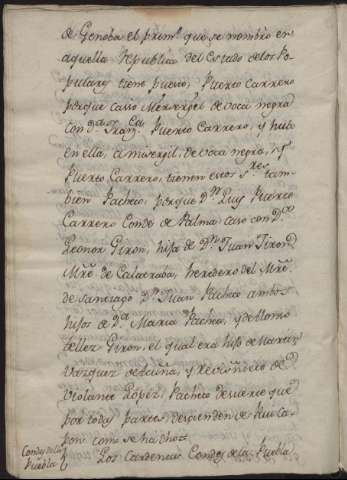 de Genoba el prim.º que se nombro en
aquella Republica del Estado de los Po-
pulares tiene puerto, Puerto Carrero
porque caso Micer egil de Voca negra
con D.ª Fran.ca Puerto Carrero, y hubo
en ella, a micer gil, de Voca negra, y
Puerto Carrero, tienen estos S.res tam-
bien Pacheco, porque D.n Luis Puerto
Carrero Conde de Palma caso con D.ª
Leonor Giron, hija de D.n Juan Giron
M.re de Calatraba, heredero del M.re
de Santiago D.n Juan Pacheco ambos
hijos de D.ª Maria Pacheco, y de Alonso
tellez Giron, el qual era hijo de Martin
Vazquez de acuña, y de D.ª
Violante Lopez, Pacheco de suerte que
por todas partes descienden de Rui ca-
pon como se ha dicho
Condes de la
Puebla
Los Cardenas Condes de la Puebla